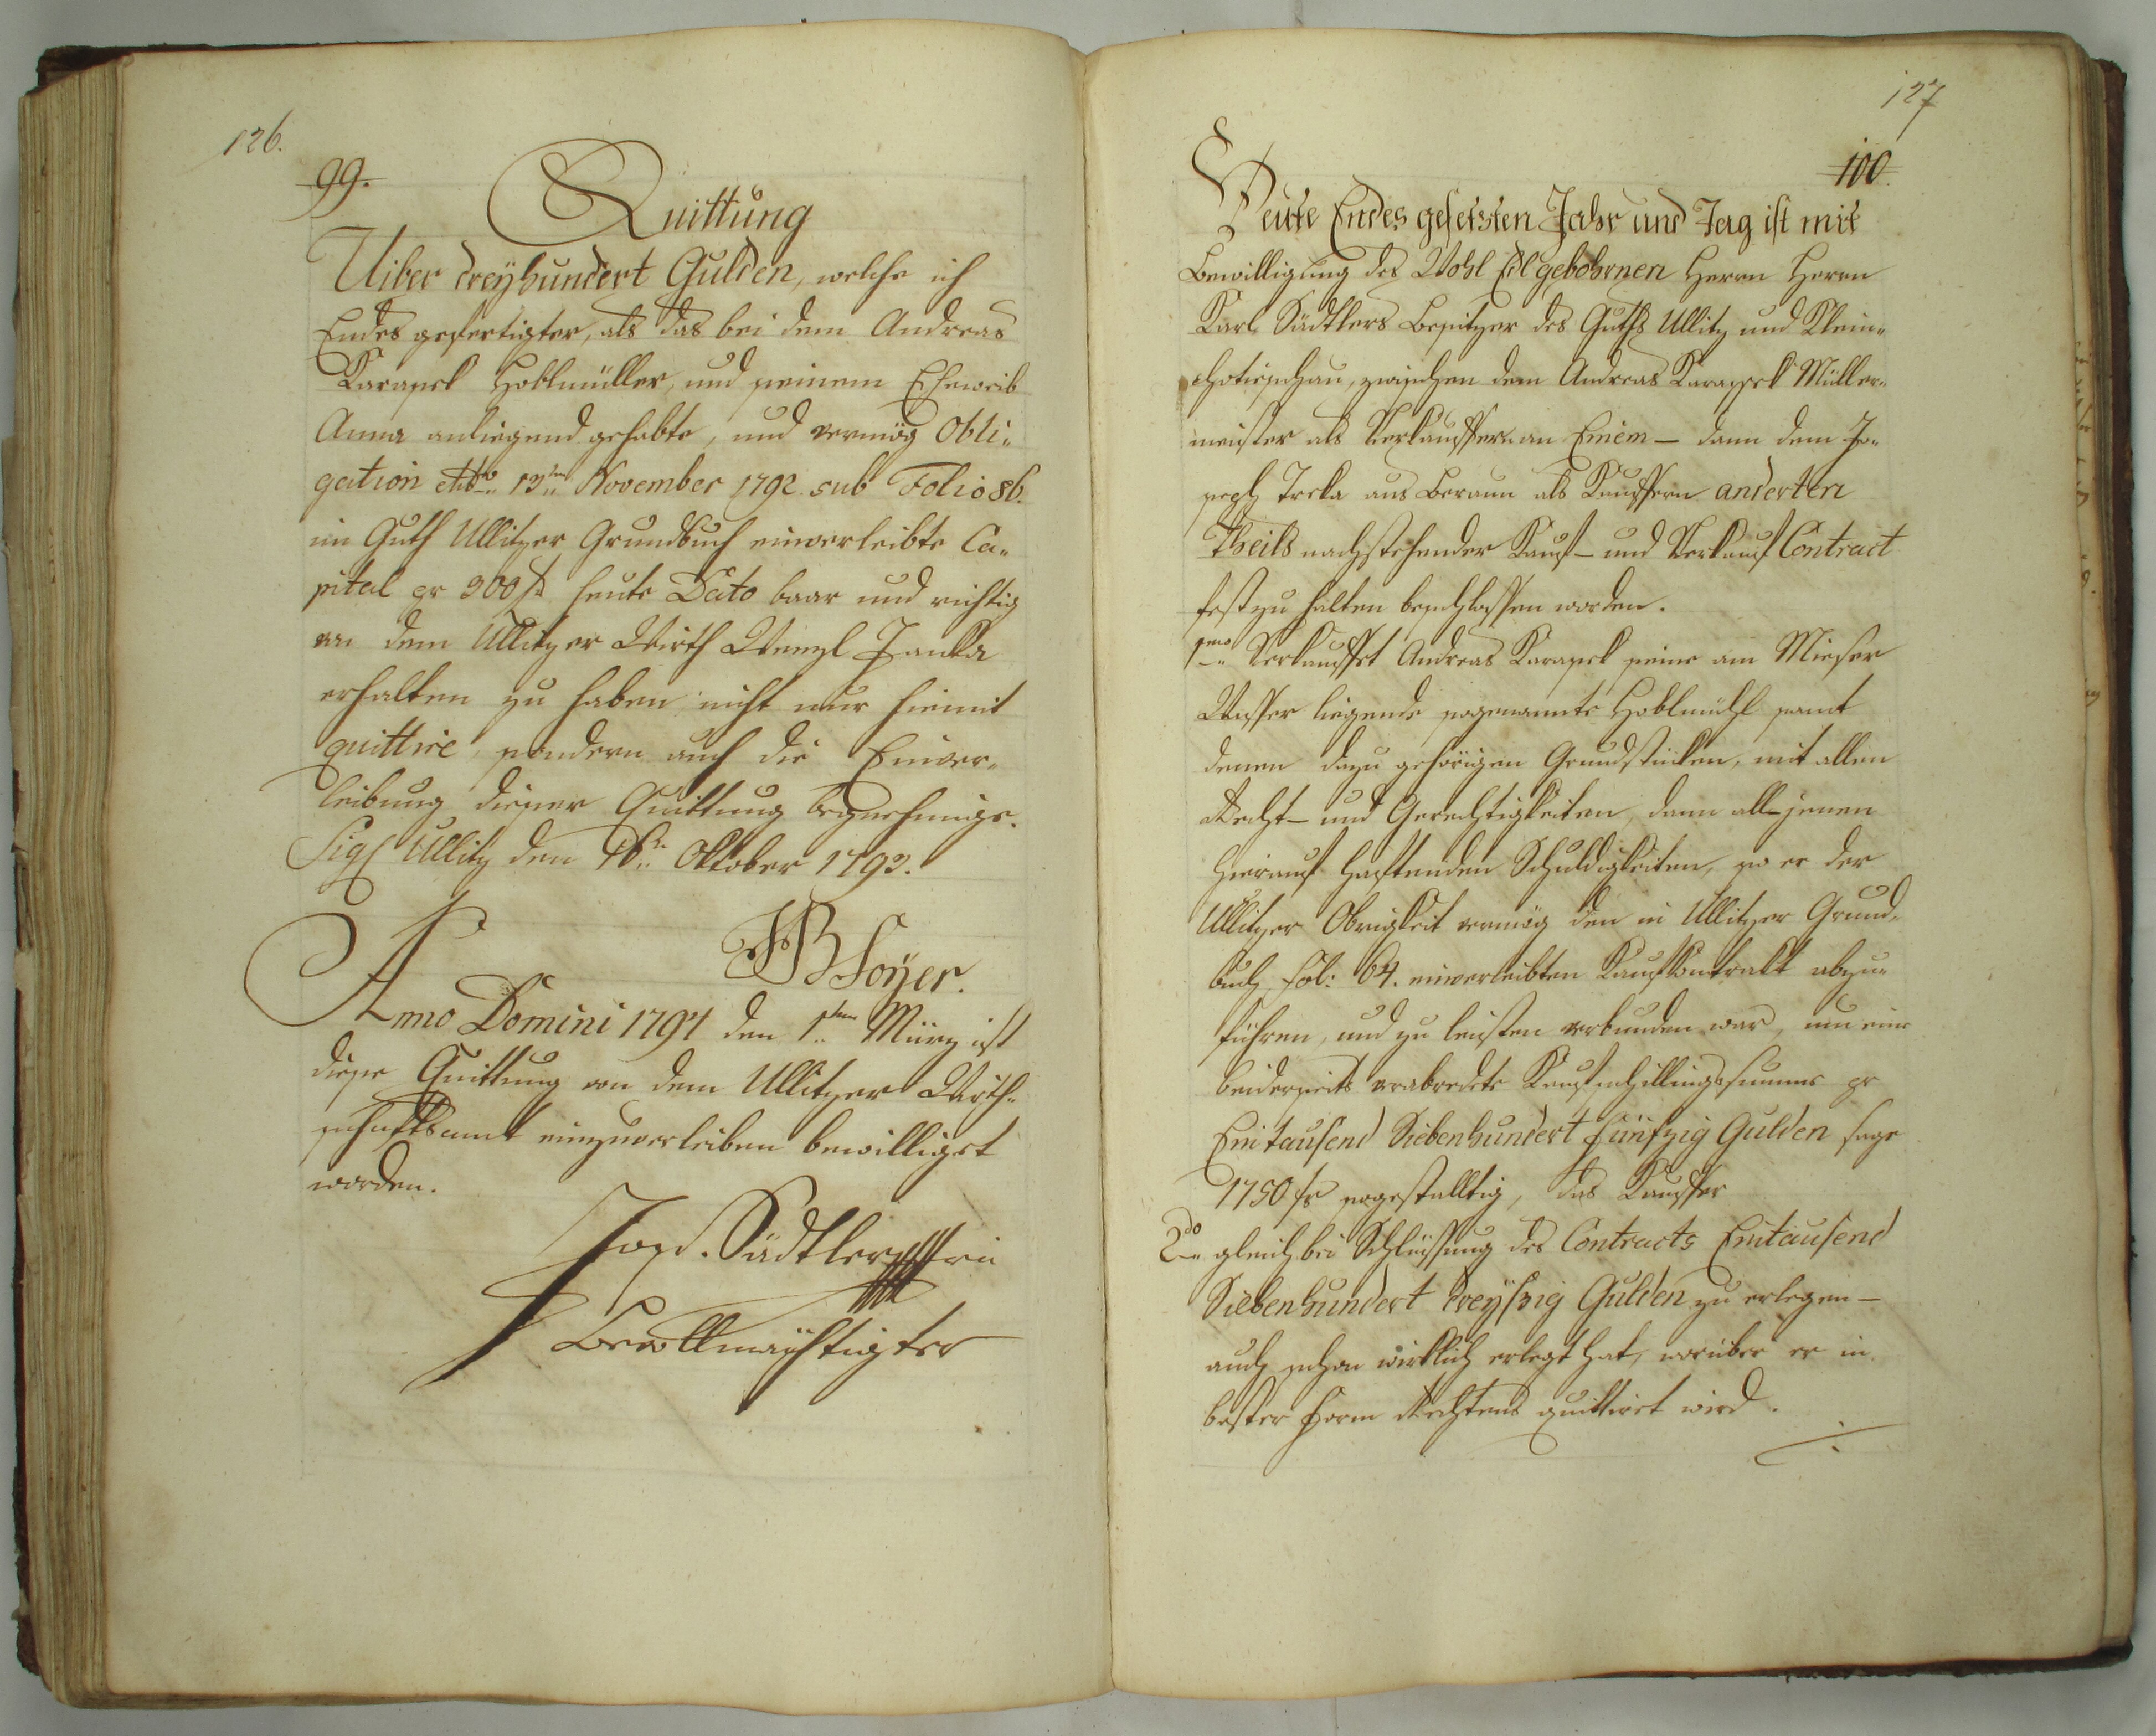 126.
99.
Quittung
Uiber dreyhundert Gulden, welche ich
Endes gefertigter, als das bei dem Andreas
Karasek Hoblmüller, und seinem Eheweib
Anna anliegend gehabte, und vermög Obli-
gation ddto 13ten November 1792. sub Folio 86.
im Guth Ullitzer Grundbuch einverleibte Ca-
pital pr 300 f heute Dato baar und richtig
von dem Ullitzer Wirth Wenzl Janka
erhalten zu haben nicht nur hiemit
quittire, sondern auch die Einver-
leibung dieser Quittung begnehmige.
Sigl Ullitz den 16ten Oktober 1793.
Soÿer.
Anno Domini 1794 den 1ten März ist
diese Quittung von dem Ullitzer Wirth-
schaftsamt einzuverleiben bewilliget
worden.
Jos. Sädtler
Bevollmächtigter
127
100.
Heute Endes gesetzten Jahr und Tag ist mit
Bewilligung des Wohl Edlgebohrnen Herrn Herrn
Karl Sädtlers Besitzer des Guths Ullitz und Klein-
chotieschau, zwischen dem Andreas Karassek Müller-
meister als Verkauffern an Einem – dann dem Jo-
seph Treka aus Beraun als Kauffern anderten
Theils nachstehender Kauf- und Verkauf Contract
fest zu halten beschlossen worden.
1mo Verkauffet Andreas Karasek seine am Mieser
Wasser liegende sogenannte Hoblmühl samt
denen dazu gehörigen Grundstücken, mit allen
Recht- und Gerechtigkeiten, dann all jenen
hierauf haftenden Schuldigkeiten, so er der
Ullitzer Obrigkeit vermög den in Ullitzer Grund-
buch fol: 64. einverleibten Kaufkontrakt abzu-
führen, und zu leisten verbunden war, um eine
beiderseits verabredete Kaufschillingssumme pr
Eintausend Siebenhundert fünfzig Gulden sage
1750 fr sogestalltig, das Kauffer
2do gleich bei Schlüssung des Contracts Eintausend
Siebenhundert dreyßig Gulden zu erlegen –
auch schon wirklich erlegt hat, worüber er in
bester Form Rechtens quittiret wird.